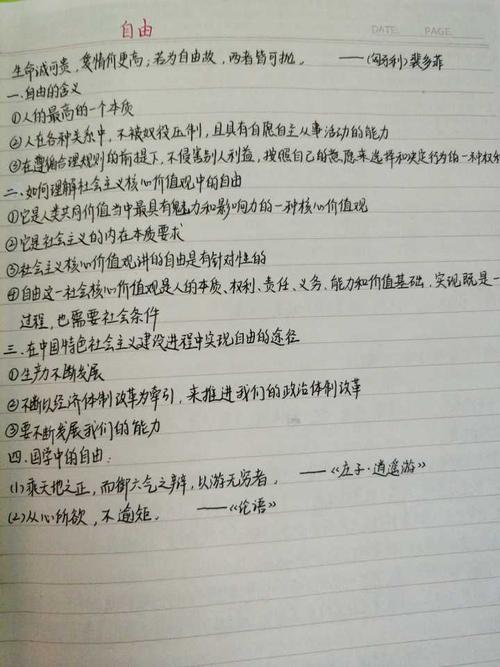 自由
DATE PAGE
生命诚可贵，爱情价更高；若为自由故，两者皆可抛。 ——(匈牙利) 裴多菲
一．自由的含义
①人的最高的一个本质
②人在各种关系中，不被奴役压制，且具有自愿自主从事活动的能力
③在遵循合理规则的前提下，不侵害别人利益，按照自己的意愿来选择和决定行为的一种权利
二、如何理解社会主义核心价值观中的自由
①它是人类共同价值当中最具有魅力和影响力的一种核心价值观
②它是社会主义的内在本质要求
③社会主义核心价值观讲的自由是有针对性的
④自由这一社会核心价值观是人的本质、权利、责任、义务、能力和价值基础，实现既是一
过程，也需要社会条件
三．在中国特色社会主义建设进程中实现自由的途径
①生产力不断发展
②不断以经济体制改革为牵引，来推进我们的政治体制改革
③要不断发展我们的能力
四．国学中的自由：
(1)乘天地之正，而御六气之辩，以游无穷者。 ——《庄子·逍遥游》
(2)从心所欲，不逾矩。 ——《论语》